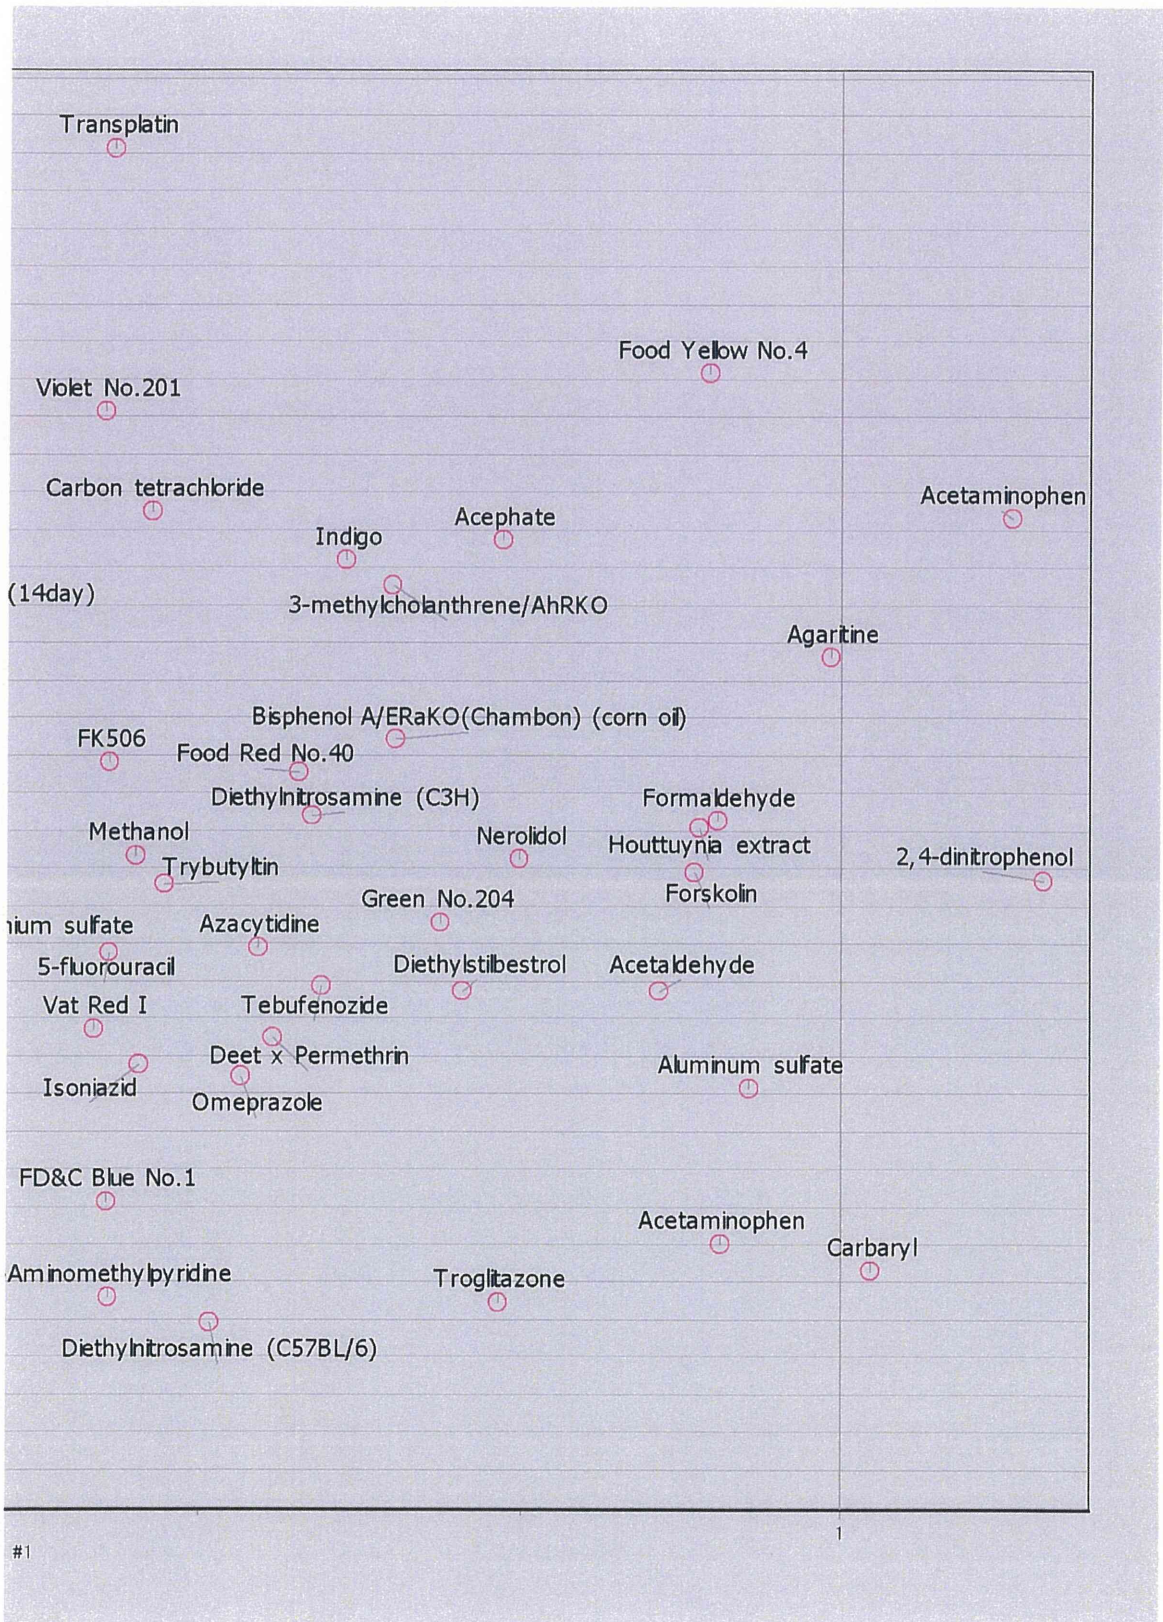 Transplatin
Food Yellow No.4
Violet No.201
Carbon tetrachloride
Acetaminophen
Acephate
Indigo
(14day)
3-methylcholanthrene/AhRKO
Agaritine
Bisphenol A/ERaKO(Chambon) (corn oil)
FK506
Food Red No.40
Diethylnitrosamine (C3H)
Formaldehyde
Methanol
Nerolidol
Houttuynia extract
2,4-dinitrophenol
Trybutyltin
Forskolin
Green No.204
nium sulfate
Azacytidine
5-fluorouracil
Diethylstilbestrol
Acetaldehyde
Vat Red I
Tebufenozide
Deet x Permethrin
Aluminum sulfate
Isoniazid
Omeprazole
FD&C Blue No.1
Acetaminophen
Carbaryl
-Aminomethylpyridine
Troglitazone
Diethylnitrosamine (C57BL/6)
1
#1